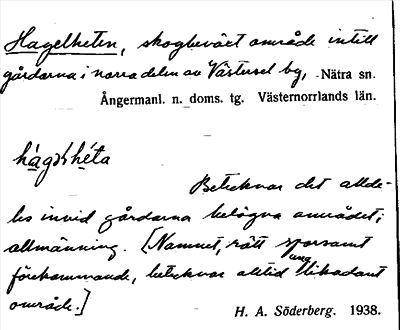 Hagelheten, skogbeväxt område intill
gårdarna i norra delen av Västersel by, Nätra sn.
Ångermanl. n. doms. tg. Västernorrlands län.
Betecknar det allde-
les invid gårdarna belägna området;
allmänning. [Namnet, rätt sparsamt
förekommande, betecknar alltid ung. likadant
område.]
H. A. Söderberg. 1938.